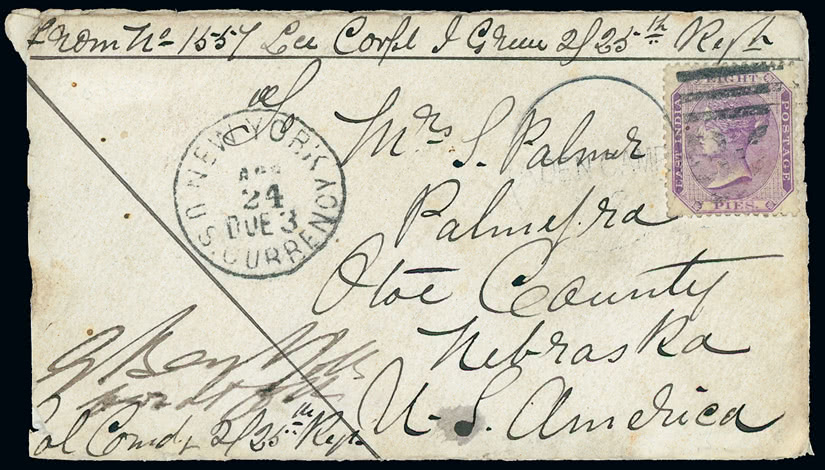 From No 1557 Lce Corpl J Green 2/25th Regt
Mrs S. Palmer
Palmyra
Otoe County
Nebraska
U.S. America
NEW YORK
APR
24
DUE 3
U.S. CURRENCY
EIGHT
EAST INDIA
POSTAGE
PIES.
Col Comdg 2/25th Regt